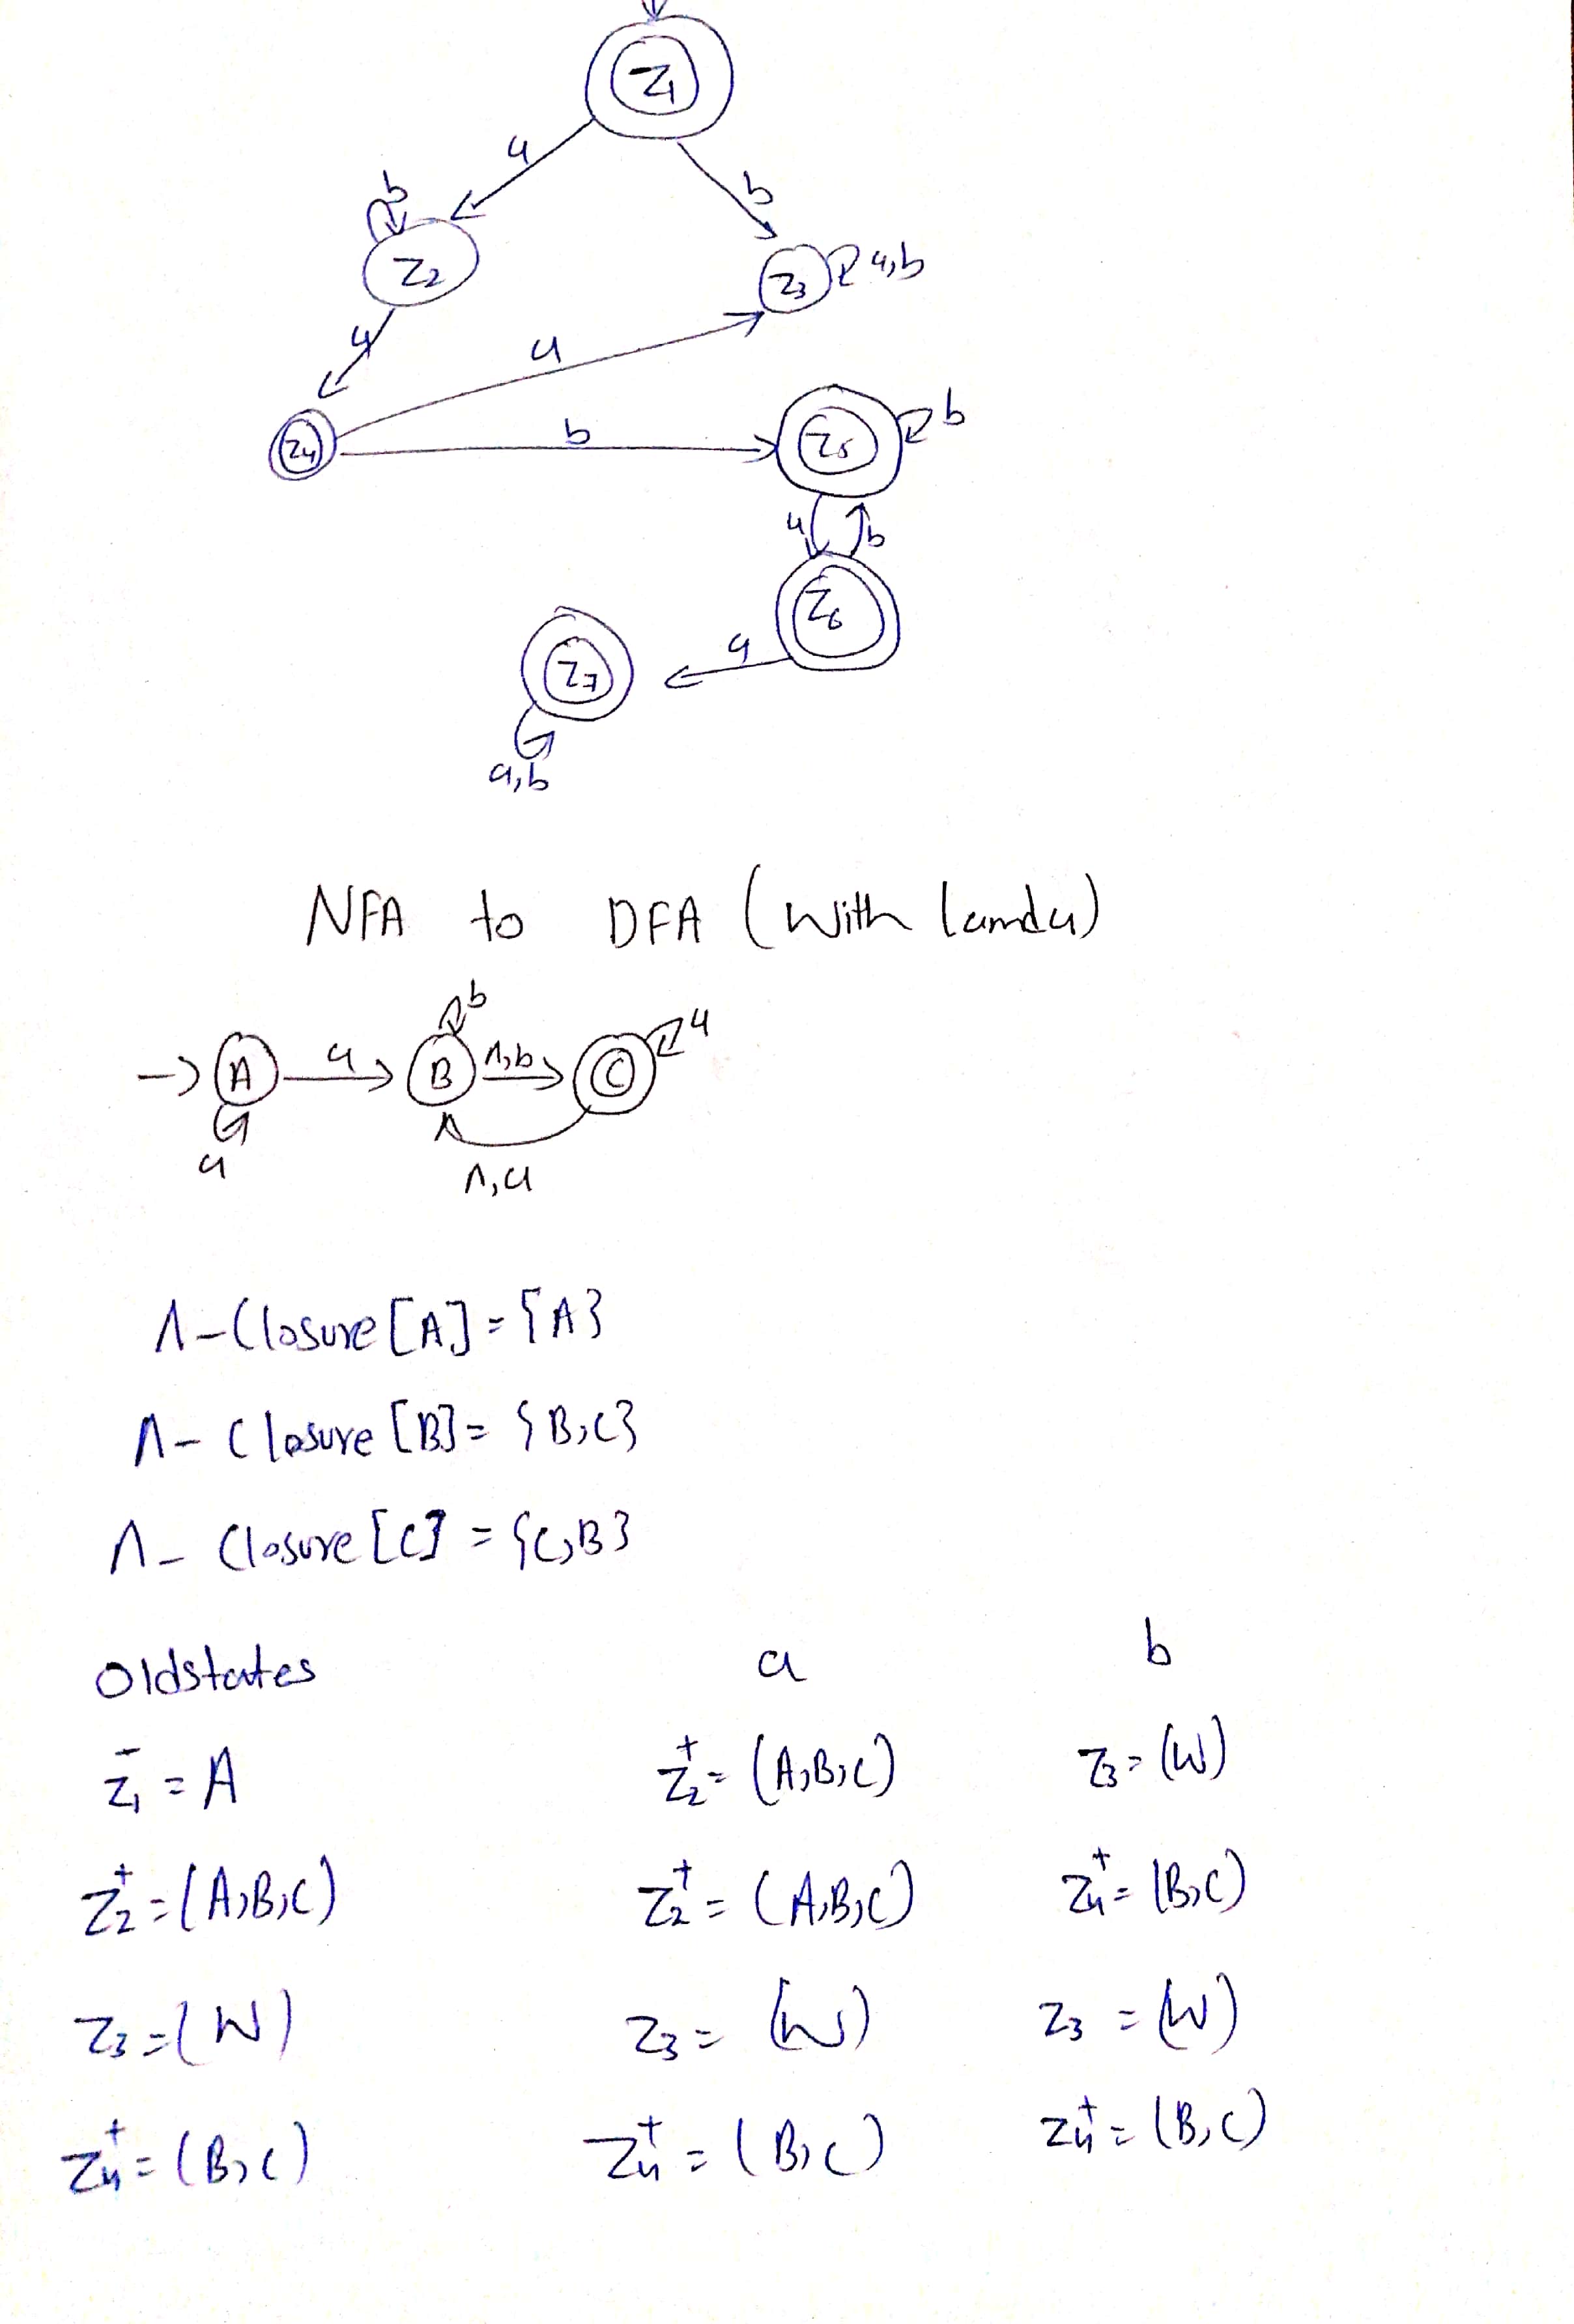 Z1
a
b
b
Z2
Z3
a,b
a
a
b
Z4
Z5
b
a
b
Z6
a
Z7
a,b
NFA to DFA (with lamda)
b
a
A
a
B
Λ,b
C
a
Λ,a
Λ-Closure [A] = {A}
Λ-Closure [B] = {B,C}
Λ-Closure [C] = {C,B}
Oldstates a b
Z1⁻ = A Z2⁺ = (A,B,C) Z3 = (W)
Z2⁺ = (A,B,C) Z2⁺ = (A,B,C) Z4⁺ = (B,C)
Z3 = (W) Z3 = (W) Z3 = (W)
Z4⁺ = (B,C) Z4⁺ = (B,C) Z4⁺ = (B,C)